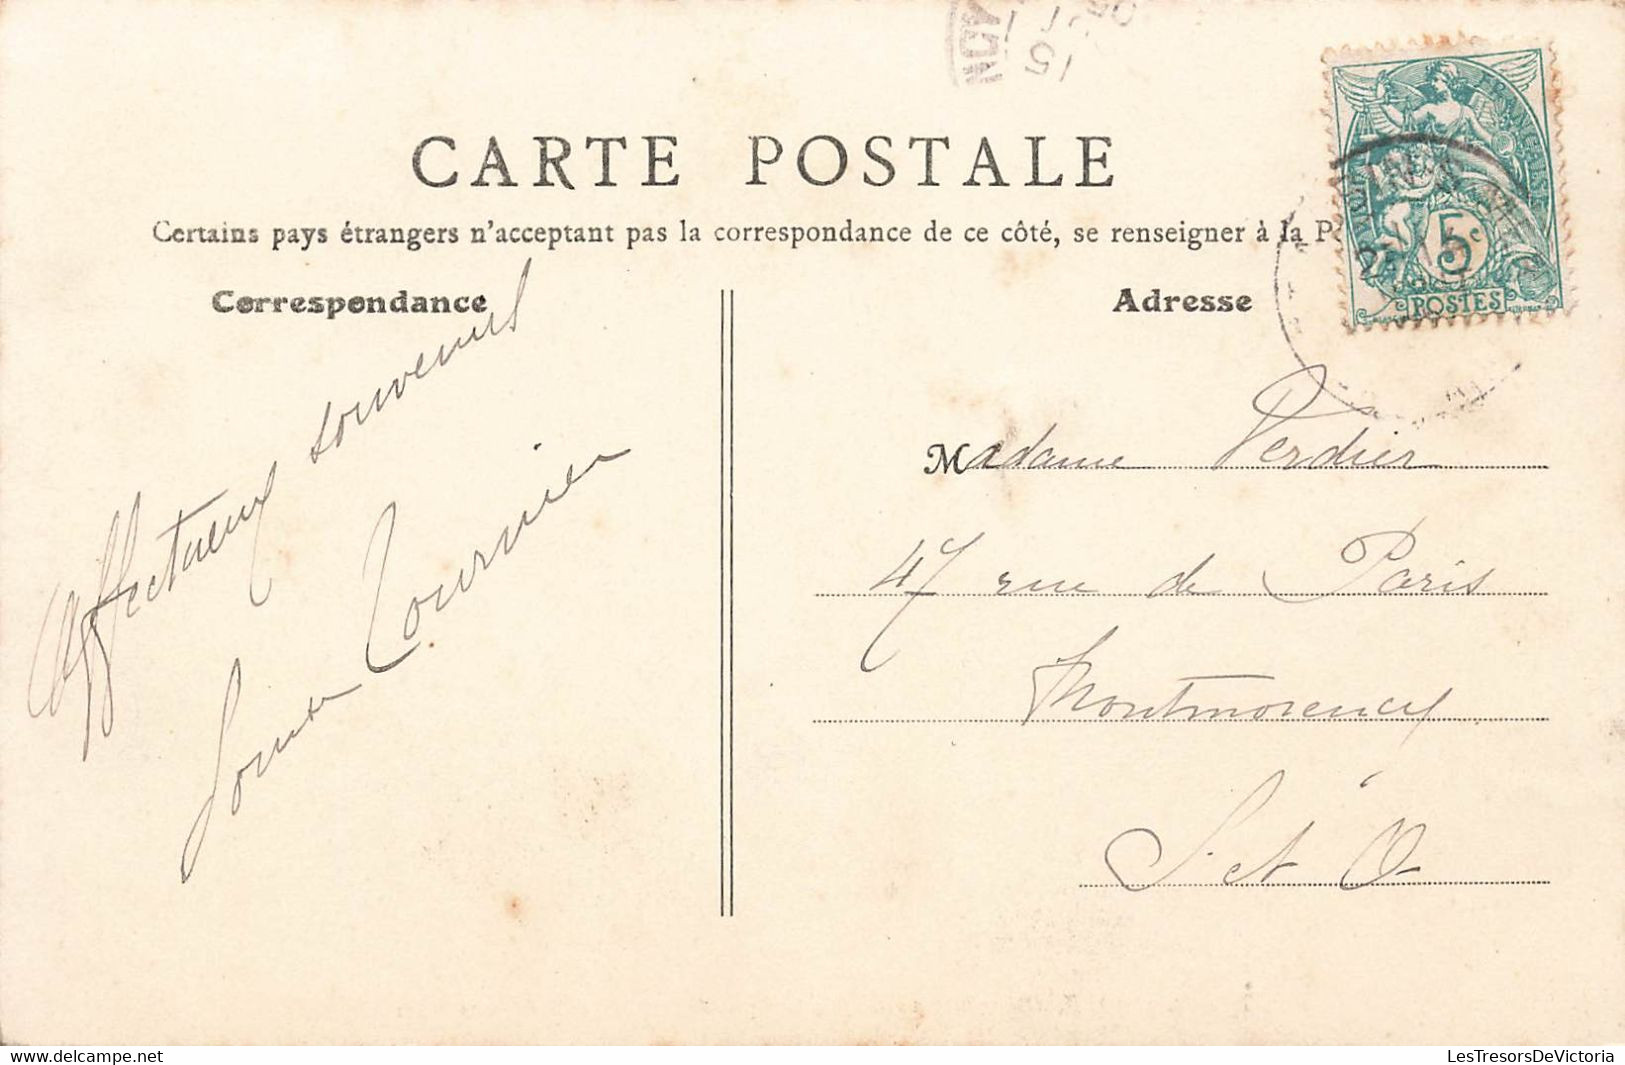 CARTE POSTALE
Certains pays étrangers n'acceptant pas la correspondance de ce côté, se renseigner à la P
Correspondance
Adresse
Affectueux souvenirs
Tournier
Madame Verdier
47 rue de Paris
Montmorency
S. et O.
5c
POSTES
15
LesTresorsDeVictoria